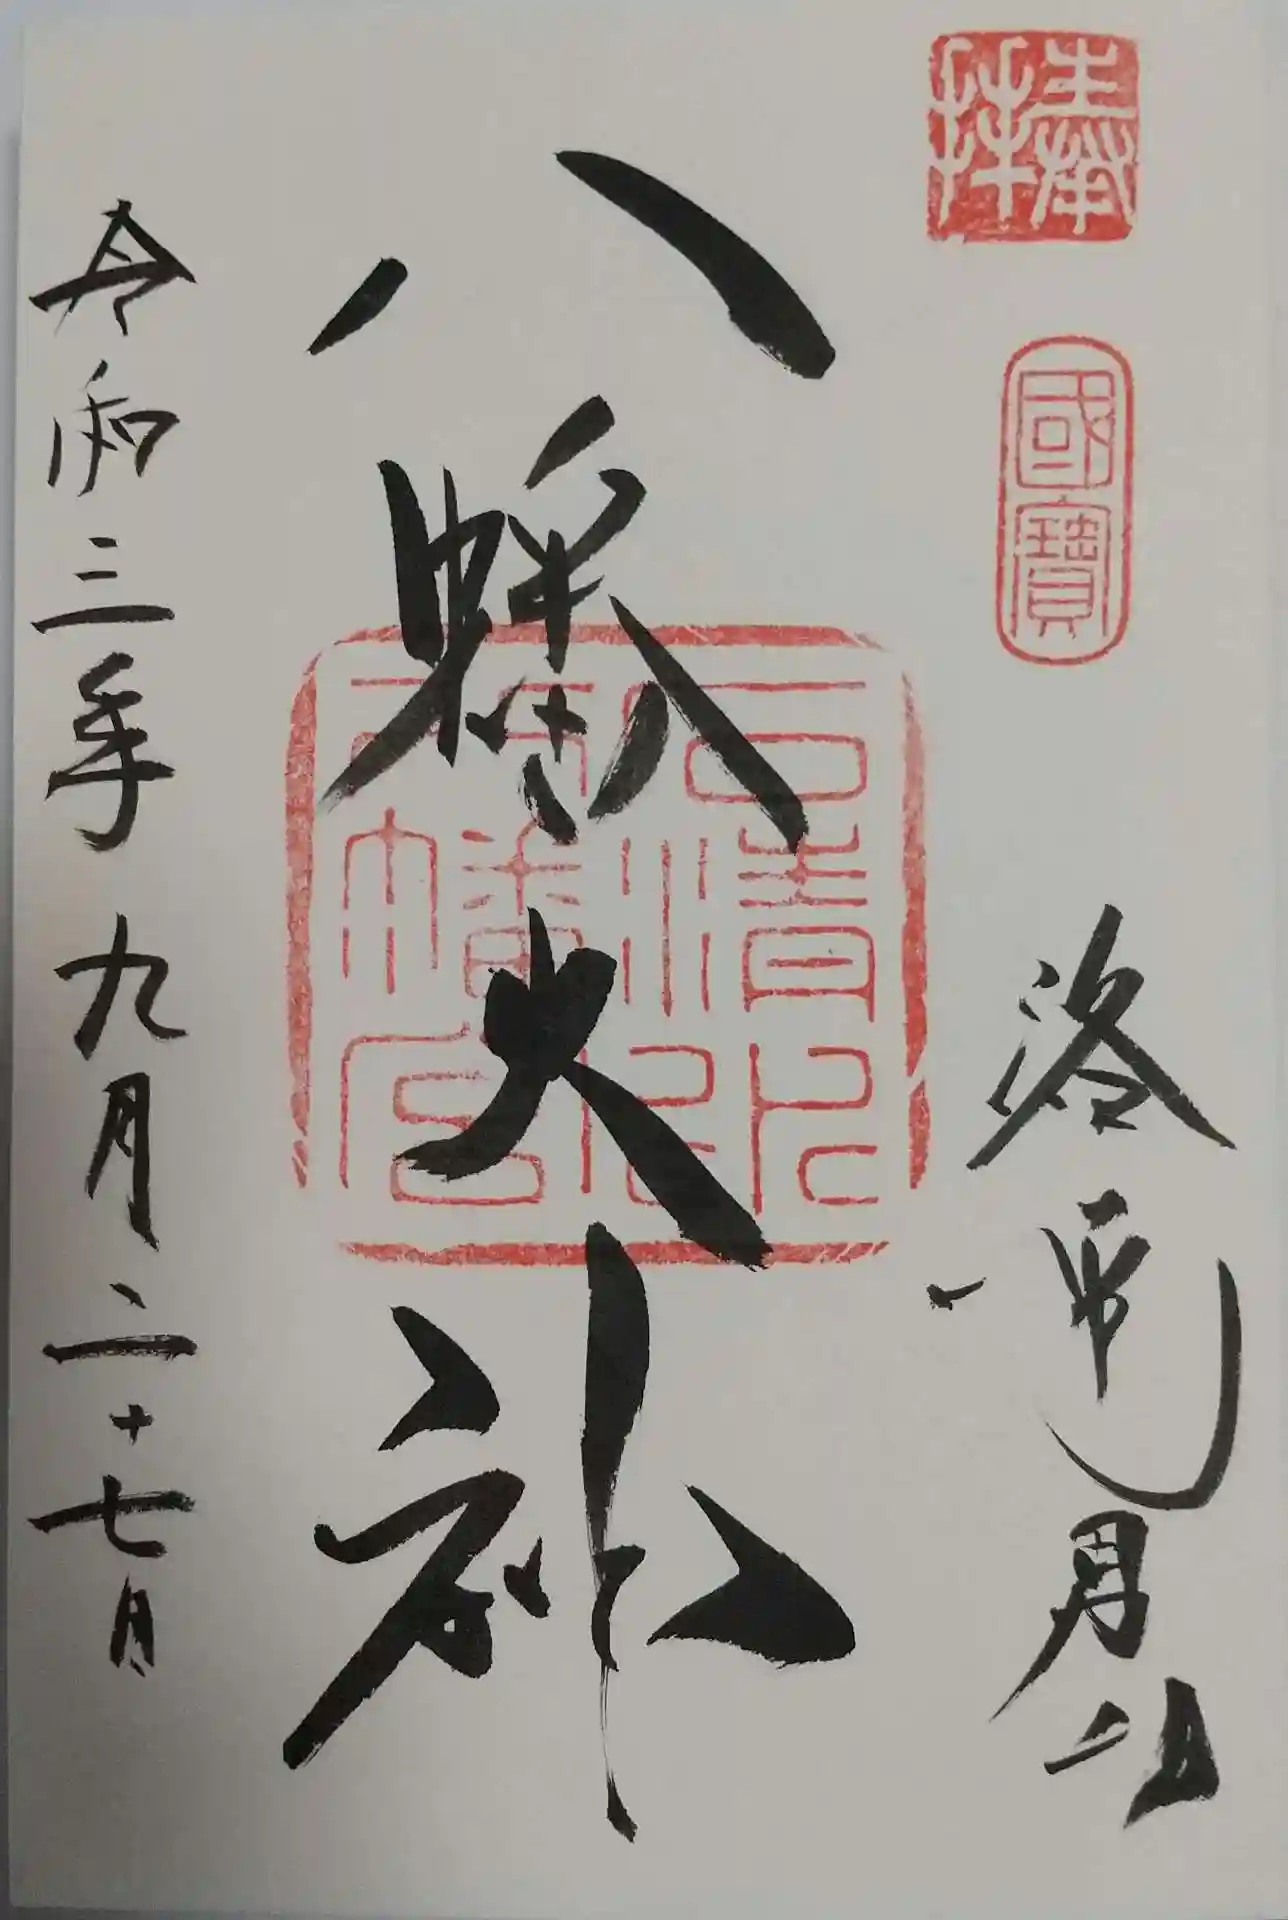 奉拝
國寶
洛南男山
石清水
八幡宮
八幡大神
令和三年九月二十七日